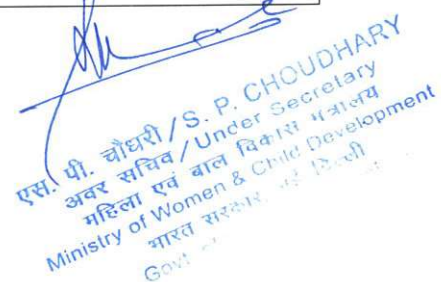 एस. पी. चौधरी / S. P. CHOUDHARY
अवर सचिव / Under Secretary
महिला एवं बाल विकास मंत्रालय
Ministry of Women & Child Development
भारत सरकार, नई दिल्ली
Govt